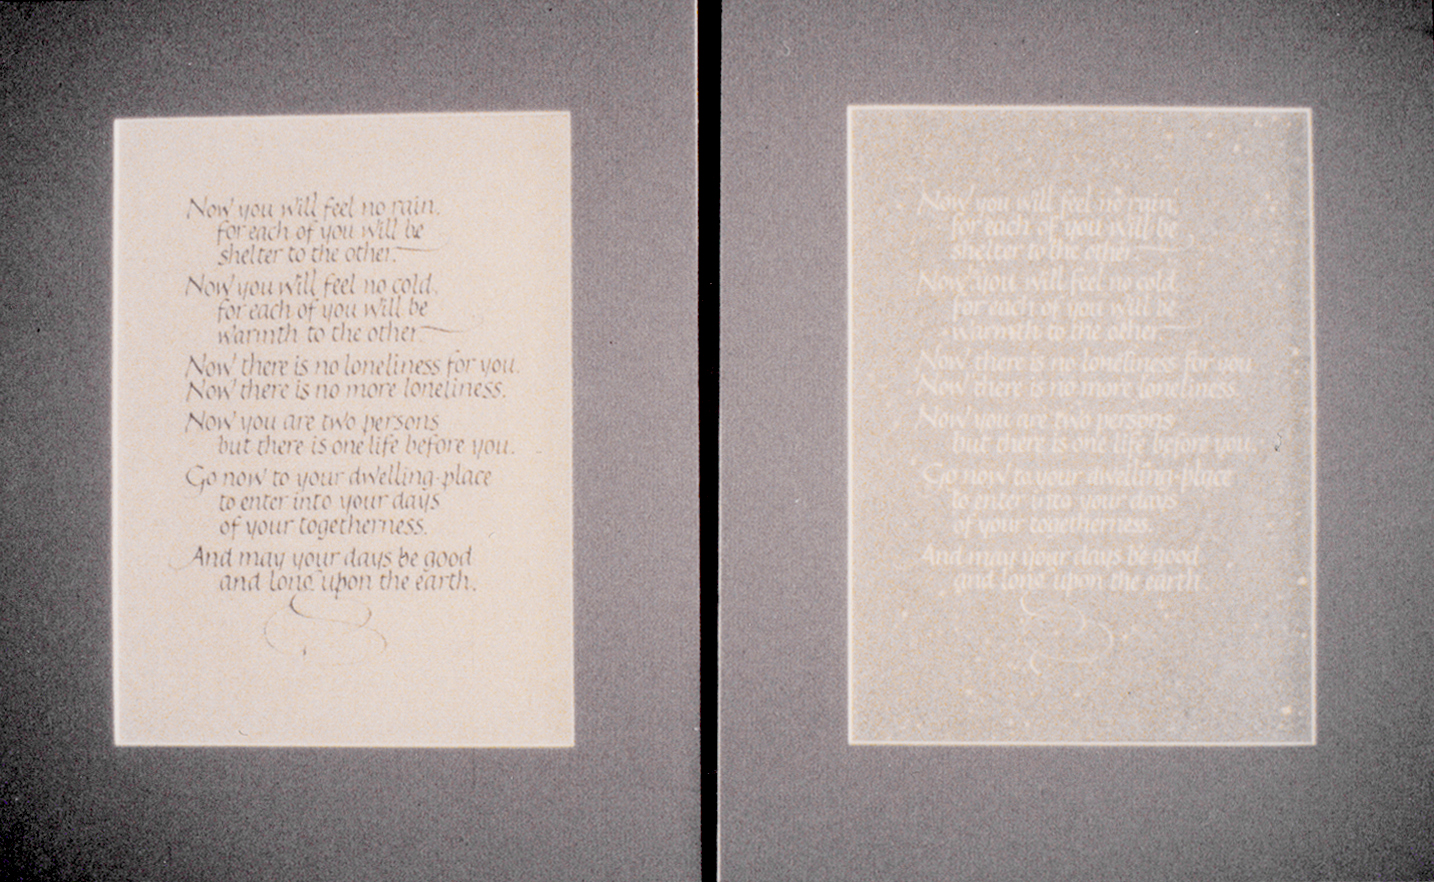 Now you will feel no rain,
for each of you will be
shelter to the other.
Now you will feel no cold,
for each of you will be
warmth to the other.
Now there is no loneliness for you.
Now there is no more loneliness.
Now you are two persons
but there is one life before you.
Go now to your dwelling-place
to enter into your days
of your togetherness.
And may your days be good
and long upon the earth.
Now you will feel no rain,
for each of you will be
shelter to the other.
Now you will feel no cold,
for each of you will be
warmth to the other.
Now there is no loneliness for you.
Now there is no more loneliness.
Now you are two persons
but there is one life before you.
Go now to your dwelling-place
to enter into your days
of your togetherness.
And may your days be good
and long upon the earth.